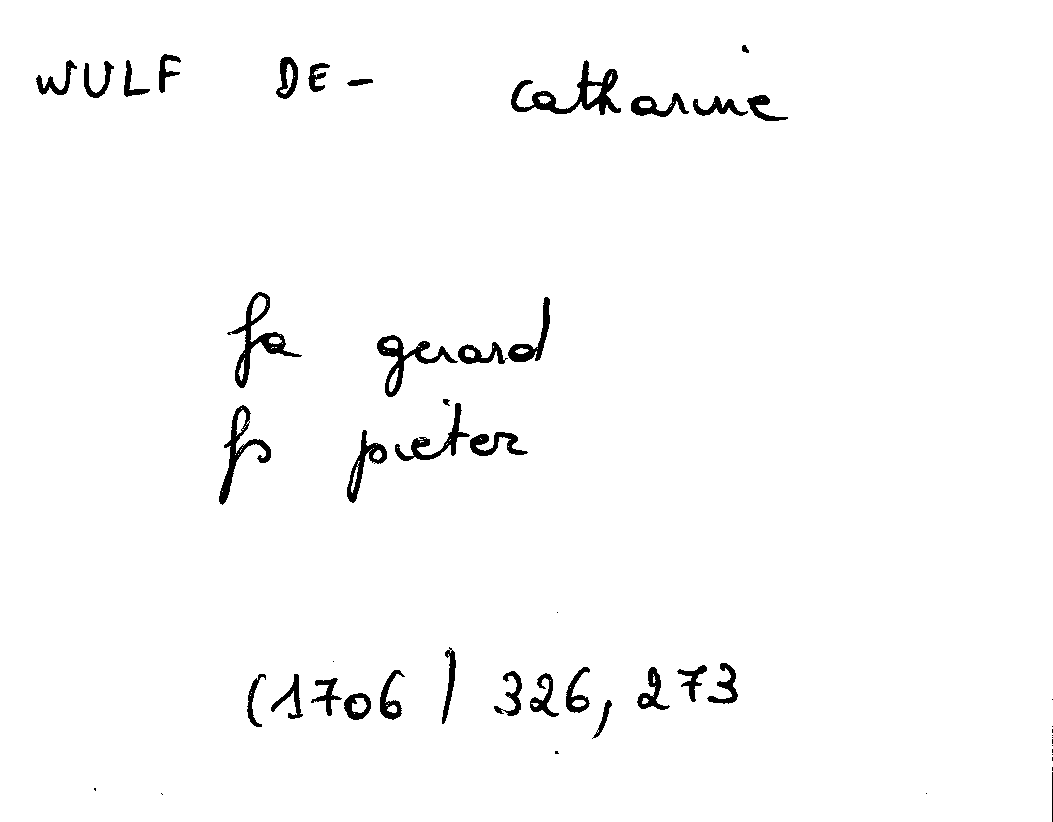 WULF DE- Catharine
fa gerard
fs pieter
(1706) 326, 273